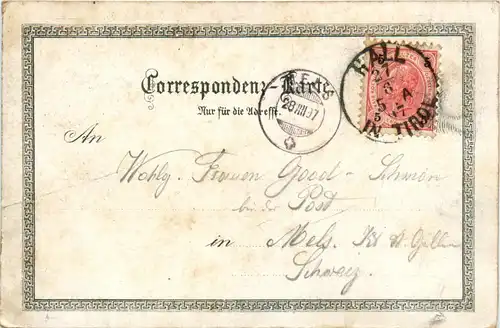 HALL
27
3
5-A
97
IN TIROL
28 III 97
Correspondenz-Karte
Nur für die Adresse.
An
Wohlg. Frauen Good-
bei der Post
in Mels. Kt St. Gallen
Schweiz.